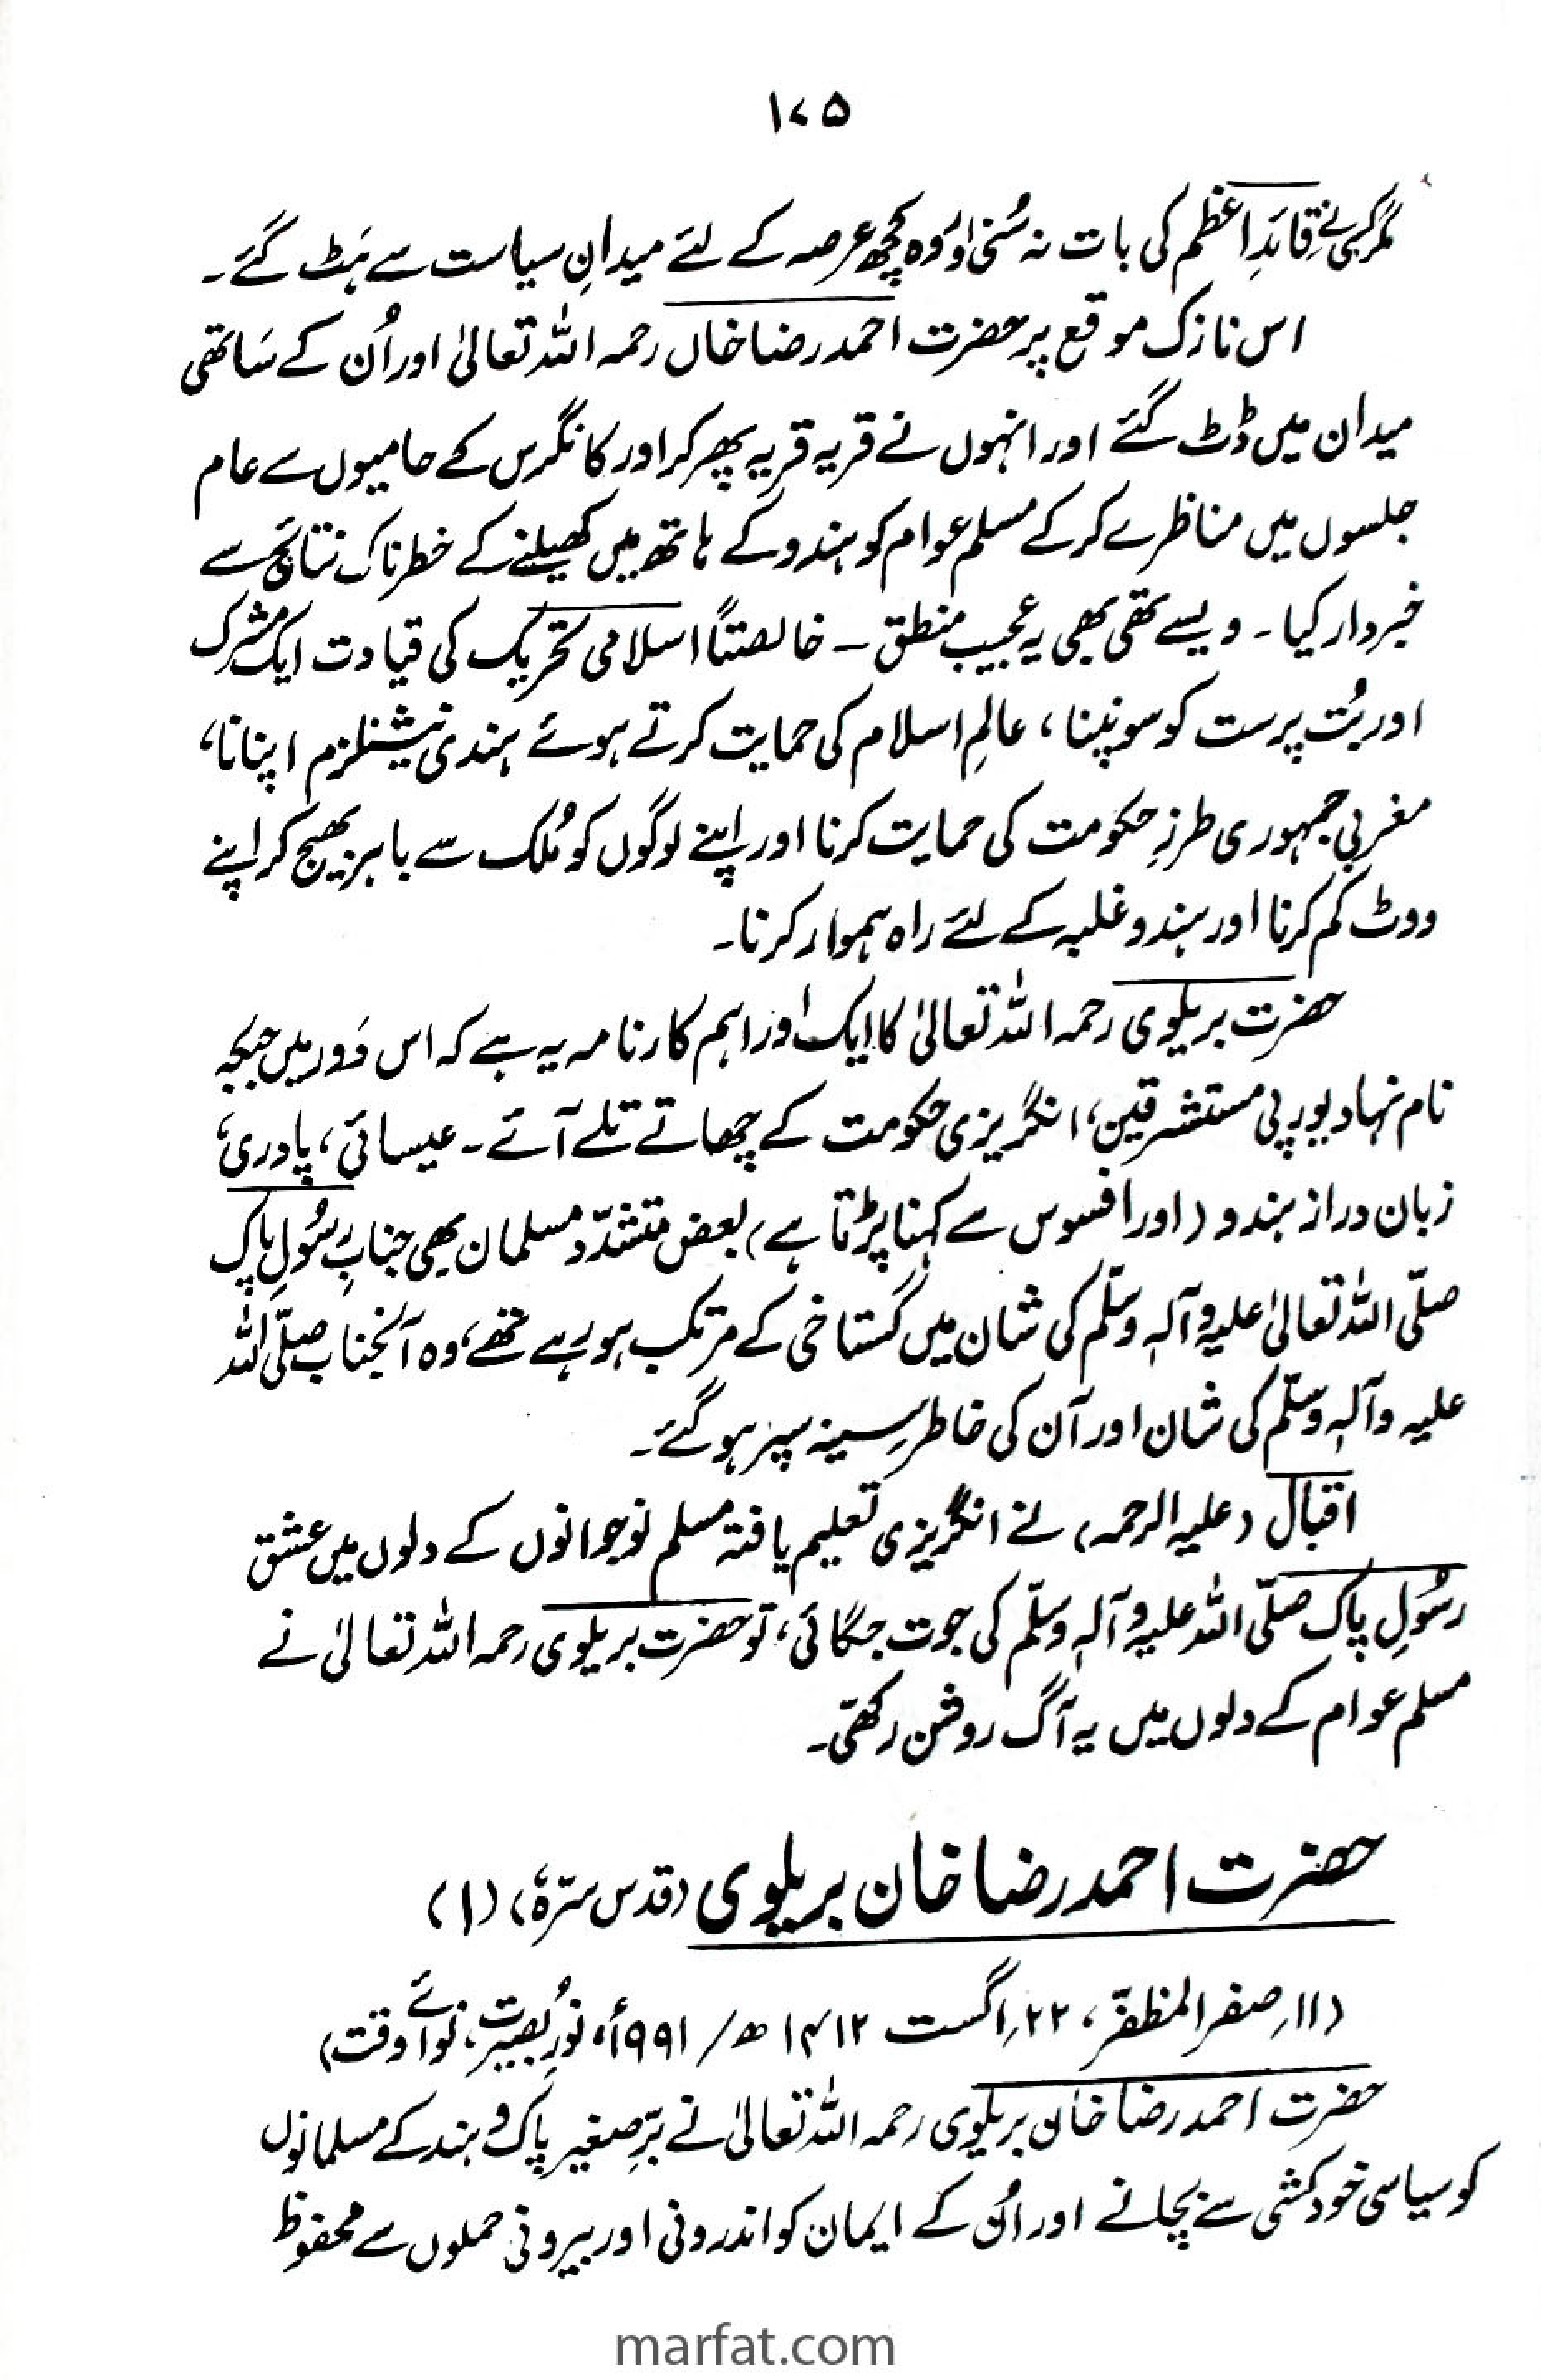 ۱۷۵
مگر کسی نے قائدِ اعظم کی بات نہ سُنی اور وہ کچھ عرصہ کے لئے میدانِ سیاست سے ہَٹ گئے۔
اس نازک موقع پر حضرت احمد رضا خاں رحمہ اللہ تعالیٰ اور اُن کے سَاتھی
میدان میں ڈٹ گئے اور انہوں نے قریہ قریہ پھر کر اور کانگرس کے حامیوں سے عام
جلسوں میں مناظرے کر کے مسلم عوام کو ہندو کے ہاتھ میں کھیلنے کے خطرناک نتائج سے
خبردار کیا۔ ویسے تھی بھی یہ عجیب منطق ۔ خالصتاً اسلامی تحریک کی قیادت ایک مشرک
اور بُت پرست کو سونپنا، عالمِ اسلام کی حمایت کرتے ہوئے ہندی نیشنلزم اپنانا،
مغربی جمہوری طرزِ حکومت کی حمایت کرنا اور اپنے لوگوں کو مُلک سے باہر بھیج کر اپنے
ووٹ کم کرنا اور ہندو غلبہ کے لئے راہ ہموار کرنا۔
حضرت بریلوی رحمہ اللہ تعالیٰ کا ایک اور اہم کارنامہ یہ ہے کہ اس دَور میں جبکہ
نام نہاد یورپی مستشرقین، انگریزی حکومت کے چھاتے تلے آئے۔ عیسائی، پادری،
زبان دراز ہندو (اور افسوس سے کہنا پڑتا ہے) بعض متشدّد مسلمان بھی جنابِ رسُولِ پاک
صلّی اللہ تعالیٰ علیہ وآلہٖ وسلّم کی شان میں گستاخی کے مرتکب ہو رہے تھے، وہ آنجناب صلّی اللہ
علیہ وآلہٖ وسلّم کی شان اور آن کی خاطر سینہ سپر ہو گئے۔
اقبال (علیہ الرحمہ) نے انگریزی تعلیم یافتہ مسلم نوجوانوں کے دلوں میں عشق
رسُولِ پاک صلّی اللہ علیہ وآلہٖ وسلّم کی جوت جگائی، تو حضرت بریلوی رحمہ اللہ تعالیٰ نے
مسلم عوام کے دلوں میں یہ آگ روشن رکھّی۔
حضرت احمد رضا خان بریلوی (قدس سرّہٗ) (۱)
(۱۱ر صفر المظفّر، ۲۲ر اگست ۱۴۱۲ھ/ ۱۹۹۱ء، نُورِ بصیرت، نوائے وقت)
حضرت احمد رضا خان بریلوی رحمہ اللہ تعالیٰ نے برّصغیر پاک و ہند کے مسلمانوں
کو سیاسی خودکشی سے بچانے اور اُن کے ایمان کو اندرونی اور بیرونی حملوں سے محفوظ
marfat.com